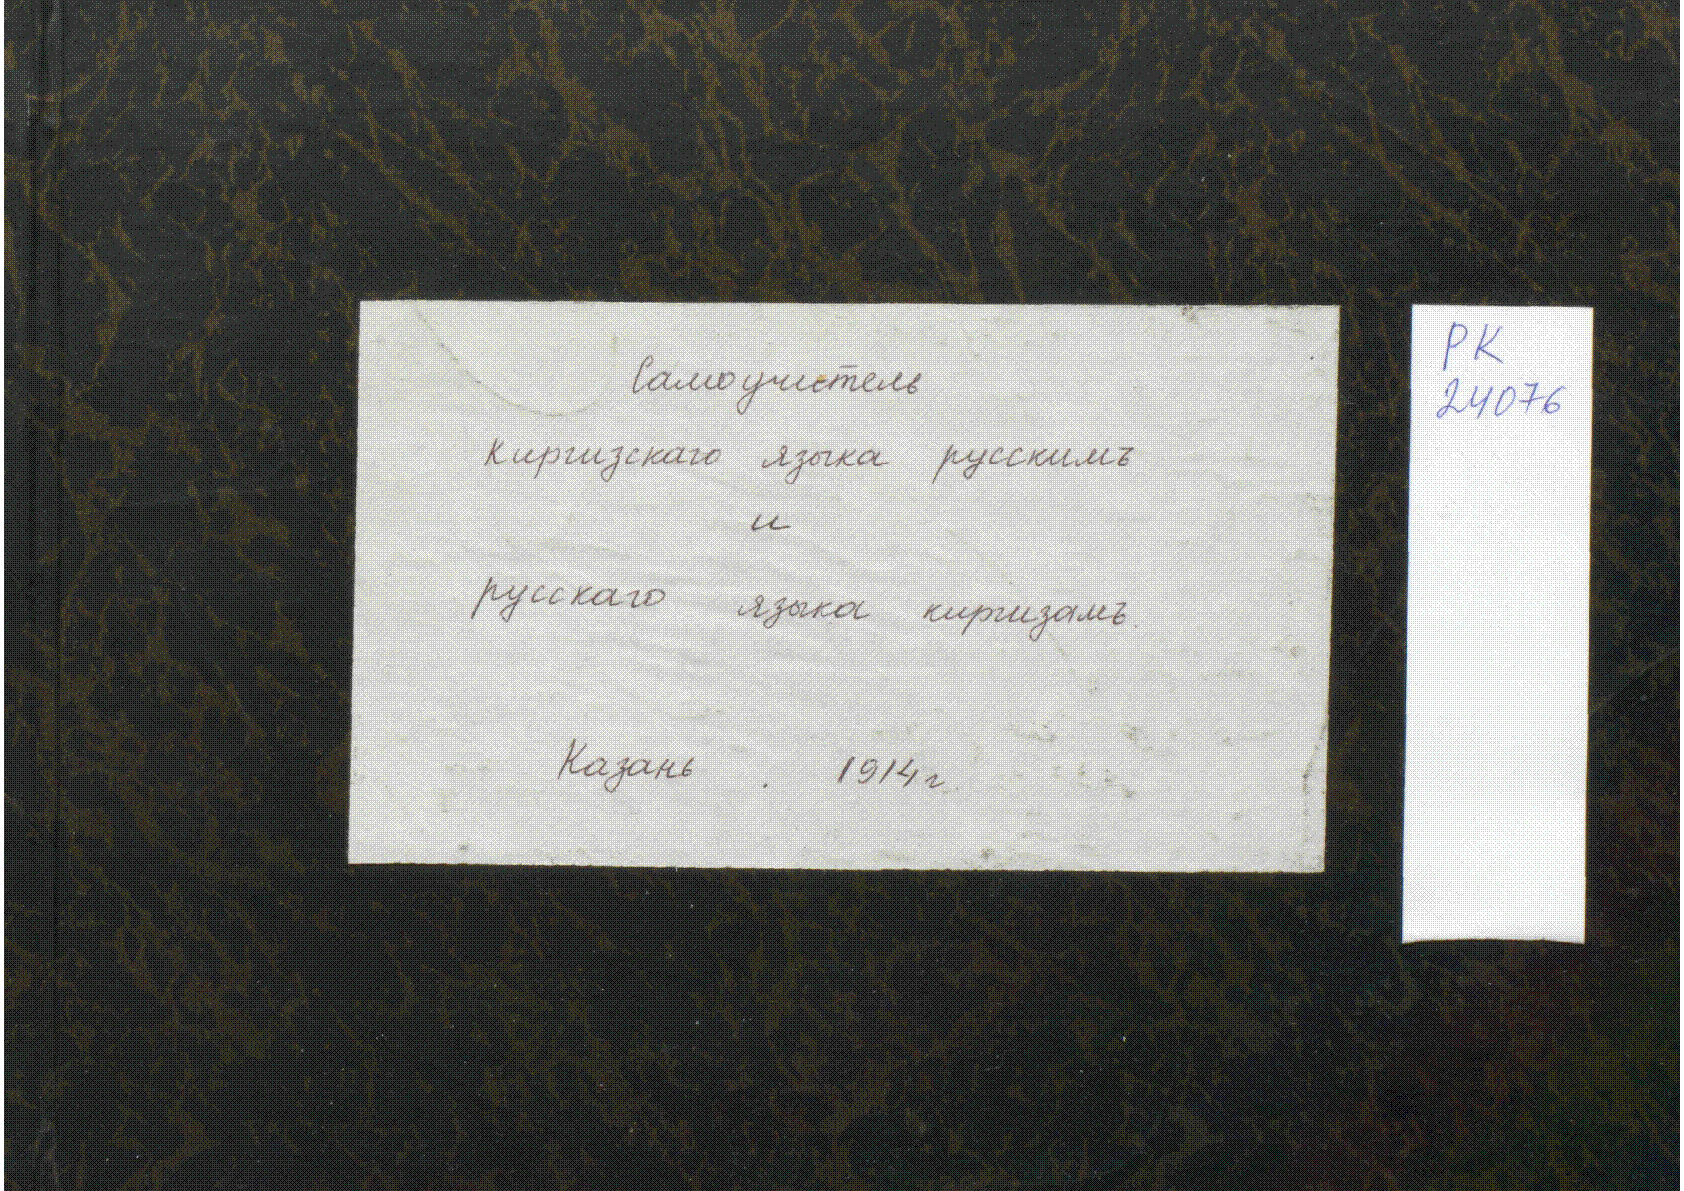 Самоучитель
Киргизскаго языка русскимъ
и
русскаго языка киргизамъ.
Казань . 1914 г
РК
24076